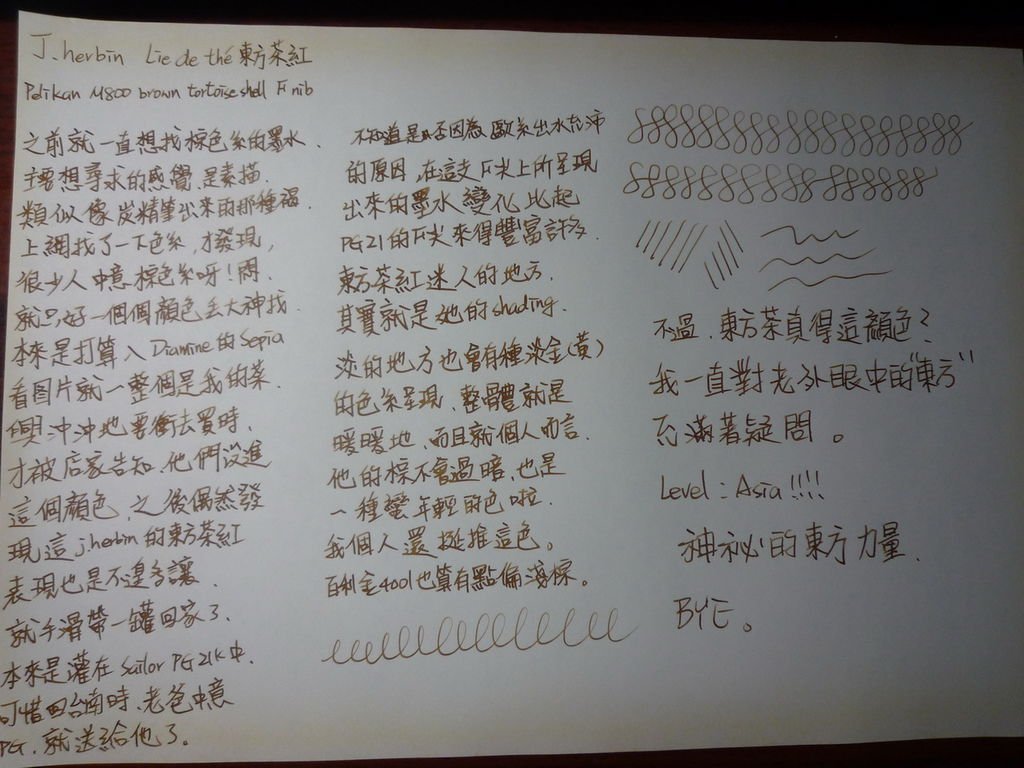 J.herbin Lie de thé 東方茶紅
Pelikan M800 brown tortoise shell F nib
之前就一直想找棕色系的墨水.
主要想尋求的感覺.是素描.
類似像炭精筆出來的那種福.
上網找了一下色系,才發現,
很少人中意棕色系呀!悶.
就只好一個個顏色丟大神找.
本來是打算入 Diamine 的 Sepia
看图片就一整個是我的菜.
興沖沖地要衝去買時.
才被店家告知.他們沒進
這個顏色.之後偶然發
現這j.herbin的東方茶紅
表現也是不遑多讓.
就手滑帶一罐回家了.
本來是灌在 Sailor PG 21K中.
可惜回台南時.老爸中意
PG.就送給他了。
不知道是否因為歐系出水充沛
的原因,在這支F尖上所呈現
出來的墨水變化,比起
PG21的F尖來得豐富許多.
東方茶紅迷人的地方.
其實就是她的shading.
淡的地方也會有種淡金(黃)
的色系呈現.整體就是
暖暖地.而且就個人而言.
他的棕不會過暗.也是
一種蠻年輕的色啦.
我個人還挺推這色。
百利金4001也算有點偏淺棕。
不過.東方茶真得這顏色?
我一直對老外眼中的"東方"
充滿著疑問。
Level:Asia!!!!
神祕的東方力量.
BYE。